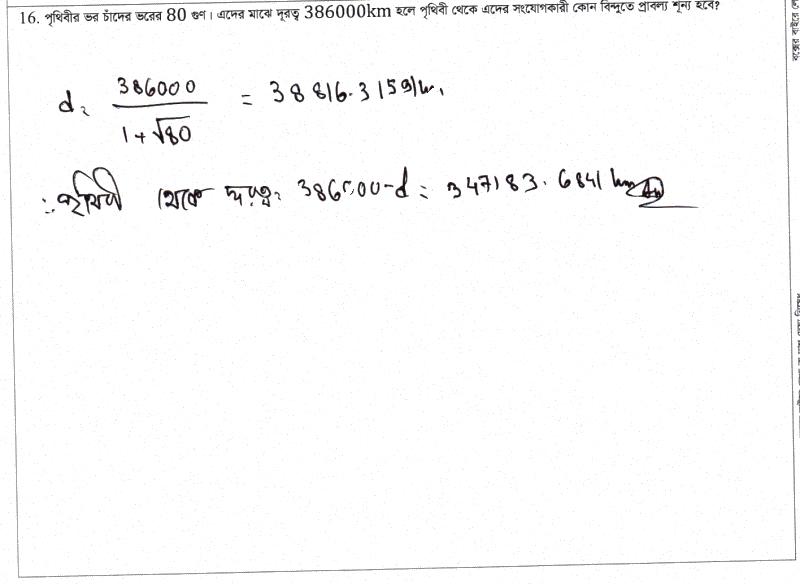 16. পৃথিবীর ভর চাঁদের ভরের 80 গুণ। এদের মাঝে দূরত্ব 386000km হলে পৃথিবী থেকে এদের সংযোগকারী কোন বিন্দুতে প্রাবল্য শূন্য হবে?
d = 386000 / 1+√80 = 38816.3159 km.
∴ পৃথিবী থেকে দূরত্ব = 386000-d = 347183.6841 km